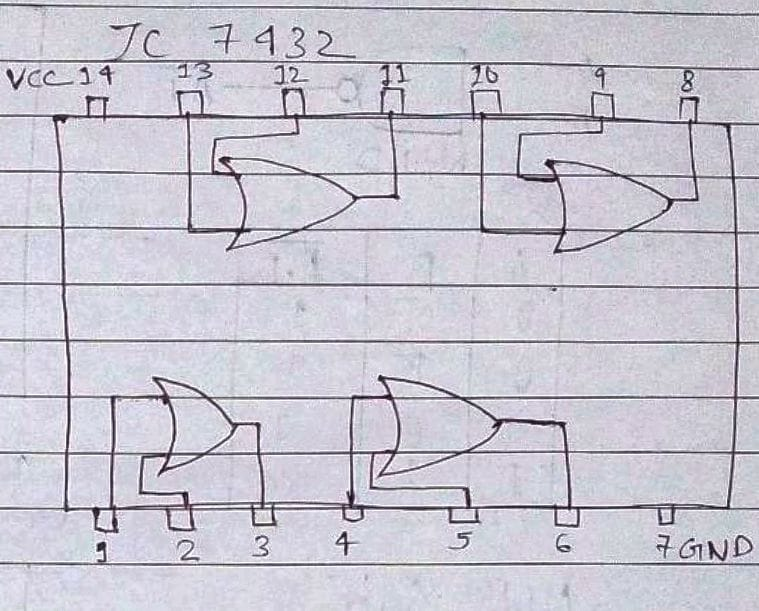 IC 7432
VCC 14 13 12 11 10 9 8
1 2 3 4 5 6 7 GND